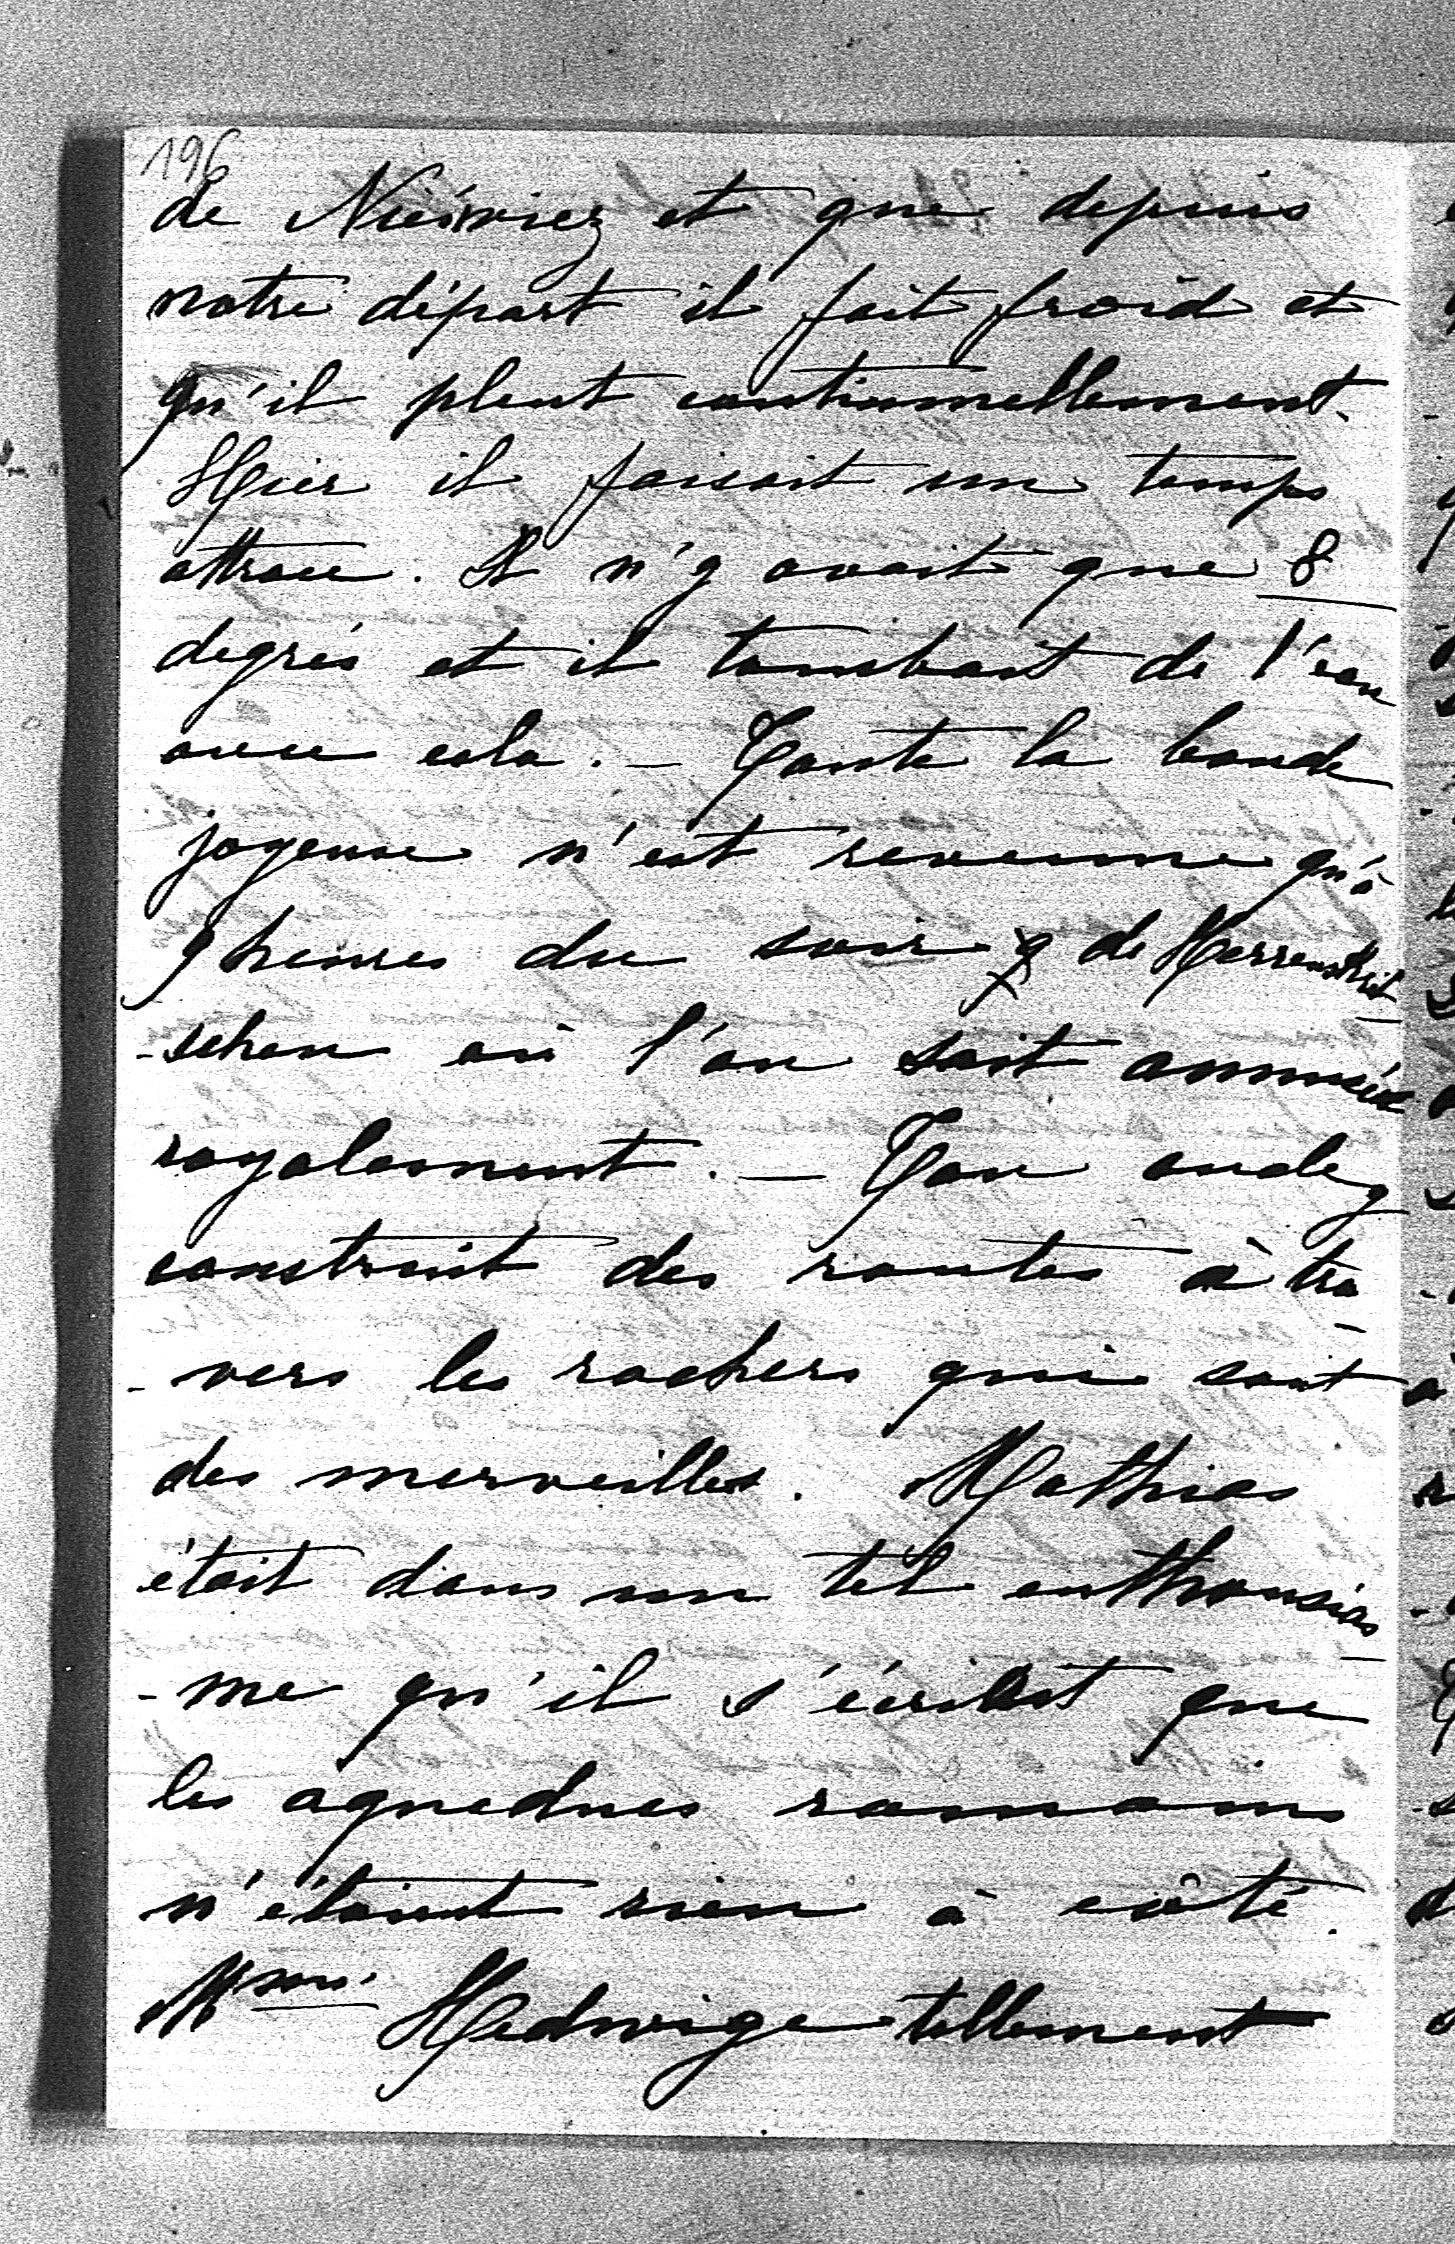 196
de Nieśwież et que depuis
notre départ il fait froid et
qu'il pleut continuellement.
Hier il faisait un temps
attroce. Il n'y avait que 8
degrés et il tombait de l'eau
avec cela. — Toute la bande
joyeuse n'est revenue qu'à
9 heures du soir de Herrenskret
-schen où l'on s'ait ammusée
royalement. — Ton oncle
construit des routes à tra
-vers les rochers qui sont
des merveilles. Mathias
était dans un tel enthousias
-me qu'il s'écriait que
les aqueducs romains
n'étaient rien à côté.
Mme Hedwige tellement